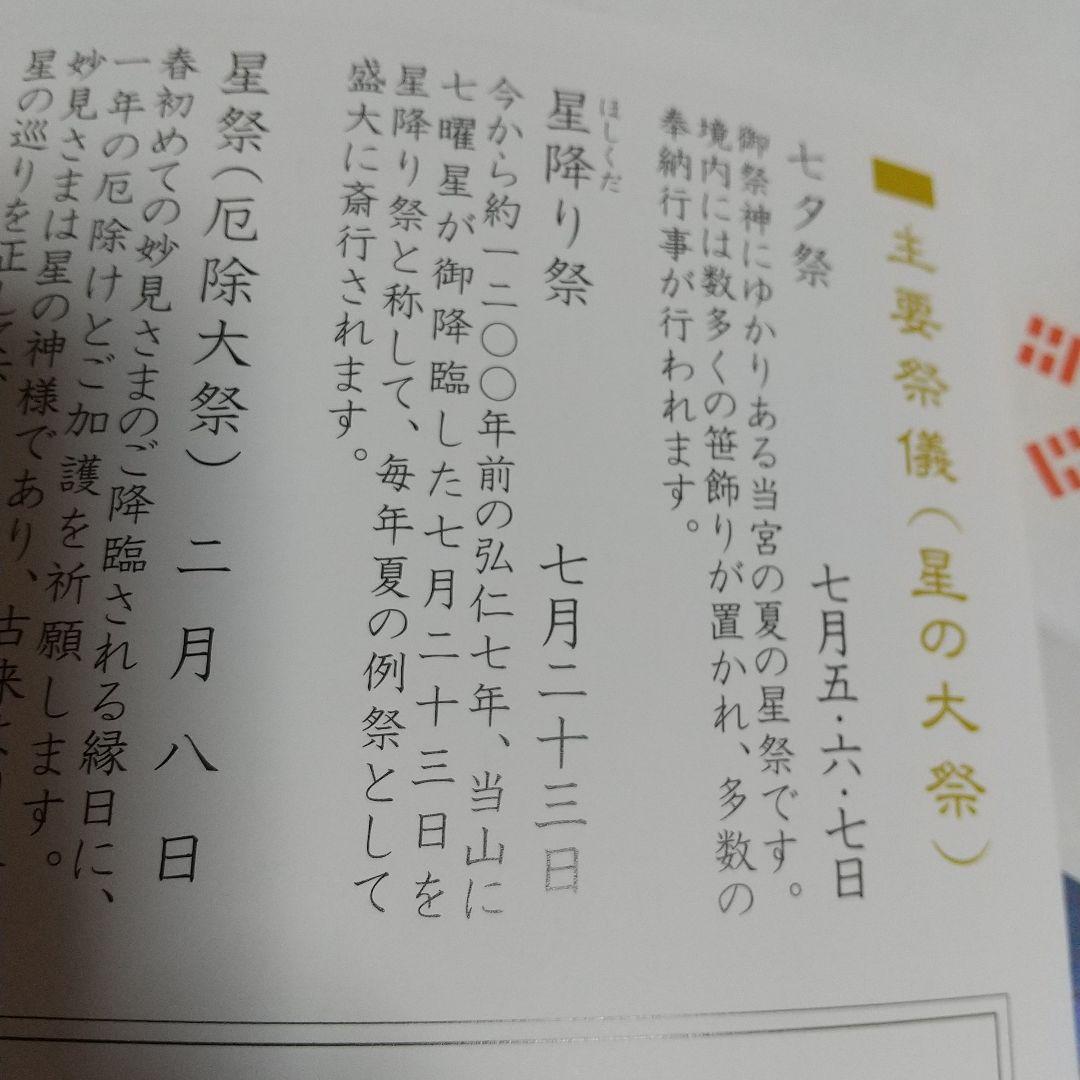 主要祭儀（星の大祭）
七夕祭　七月五・六・七日
御祭神にゆかりある当宮の夏の星祭です。
境内には数多くの笹飾りが置かれ、多数の
奉納行事が行われます。
ほしくだ
星降り祭　七月二十三日
今から約一二〇〇年前の弘仁七年、当山に
七曜星が御降臨した七月二十三日を
星降り祭と称して、毎年夏の例祭として
盛大に斎行されます。
星祭（厄除大祭）　二月八日
春初めての妙見さまのご降臨される縁日に、
一年の厄除けとご加護を祈願します。
妙見さまは星の神様であり、古来
星の巡りを正